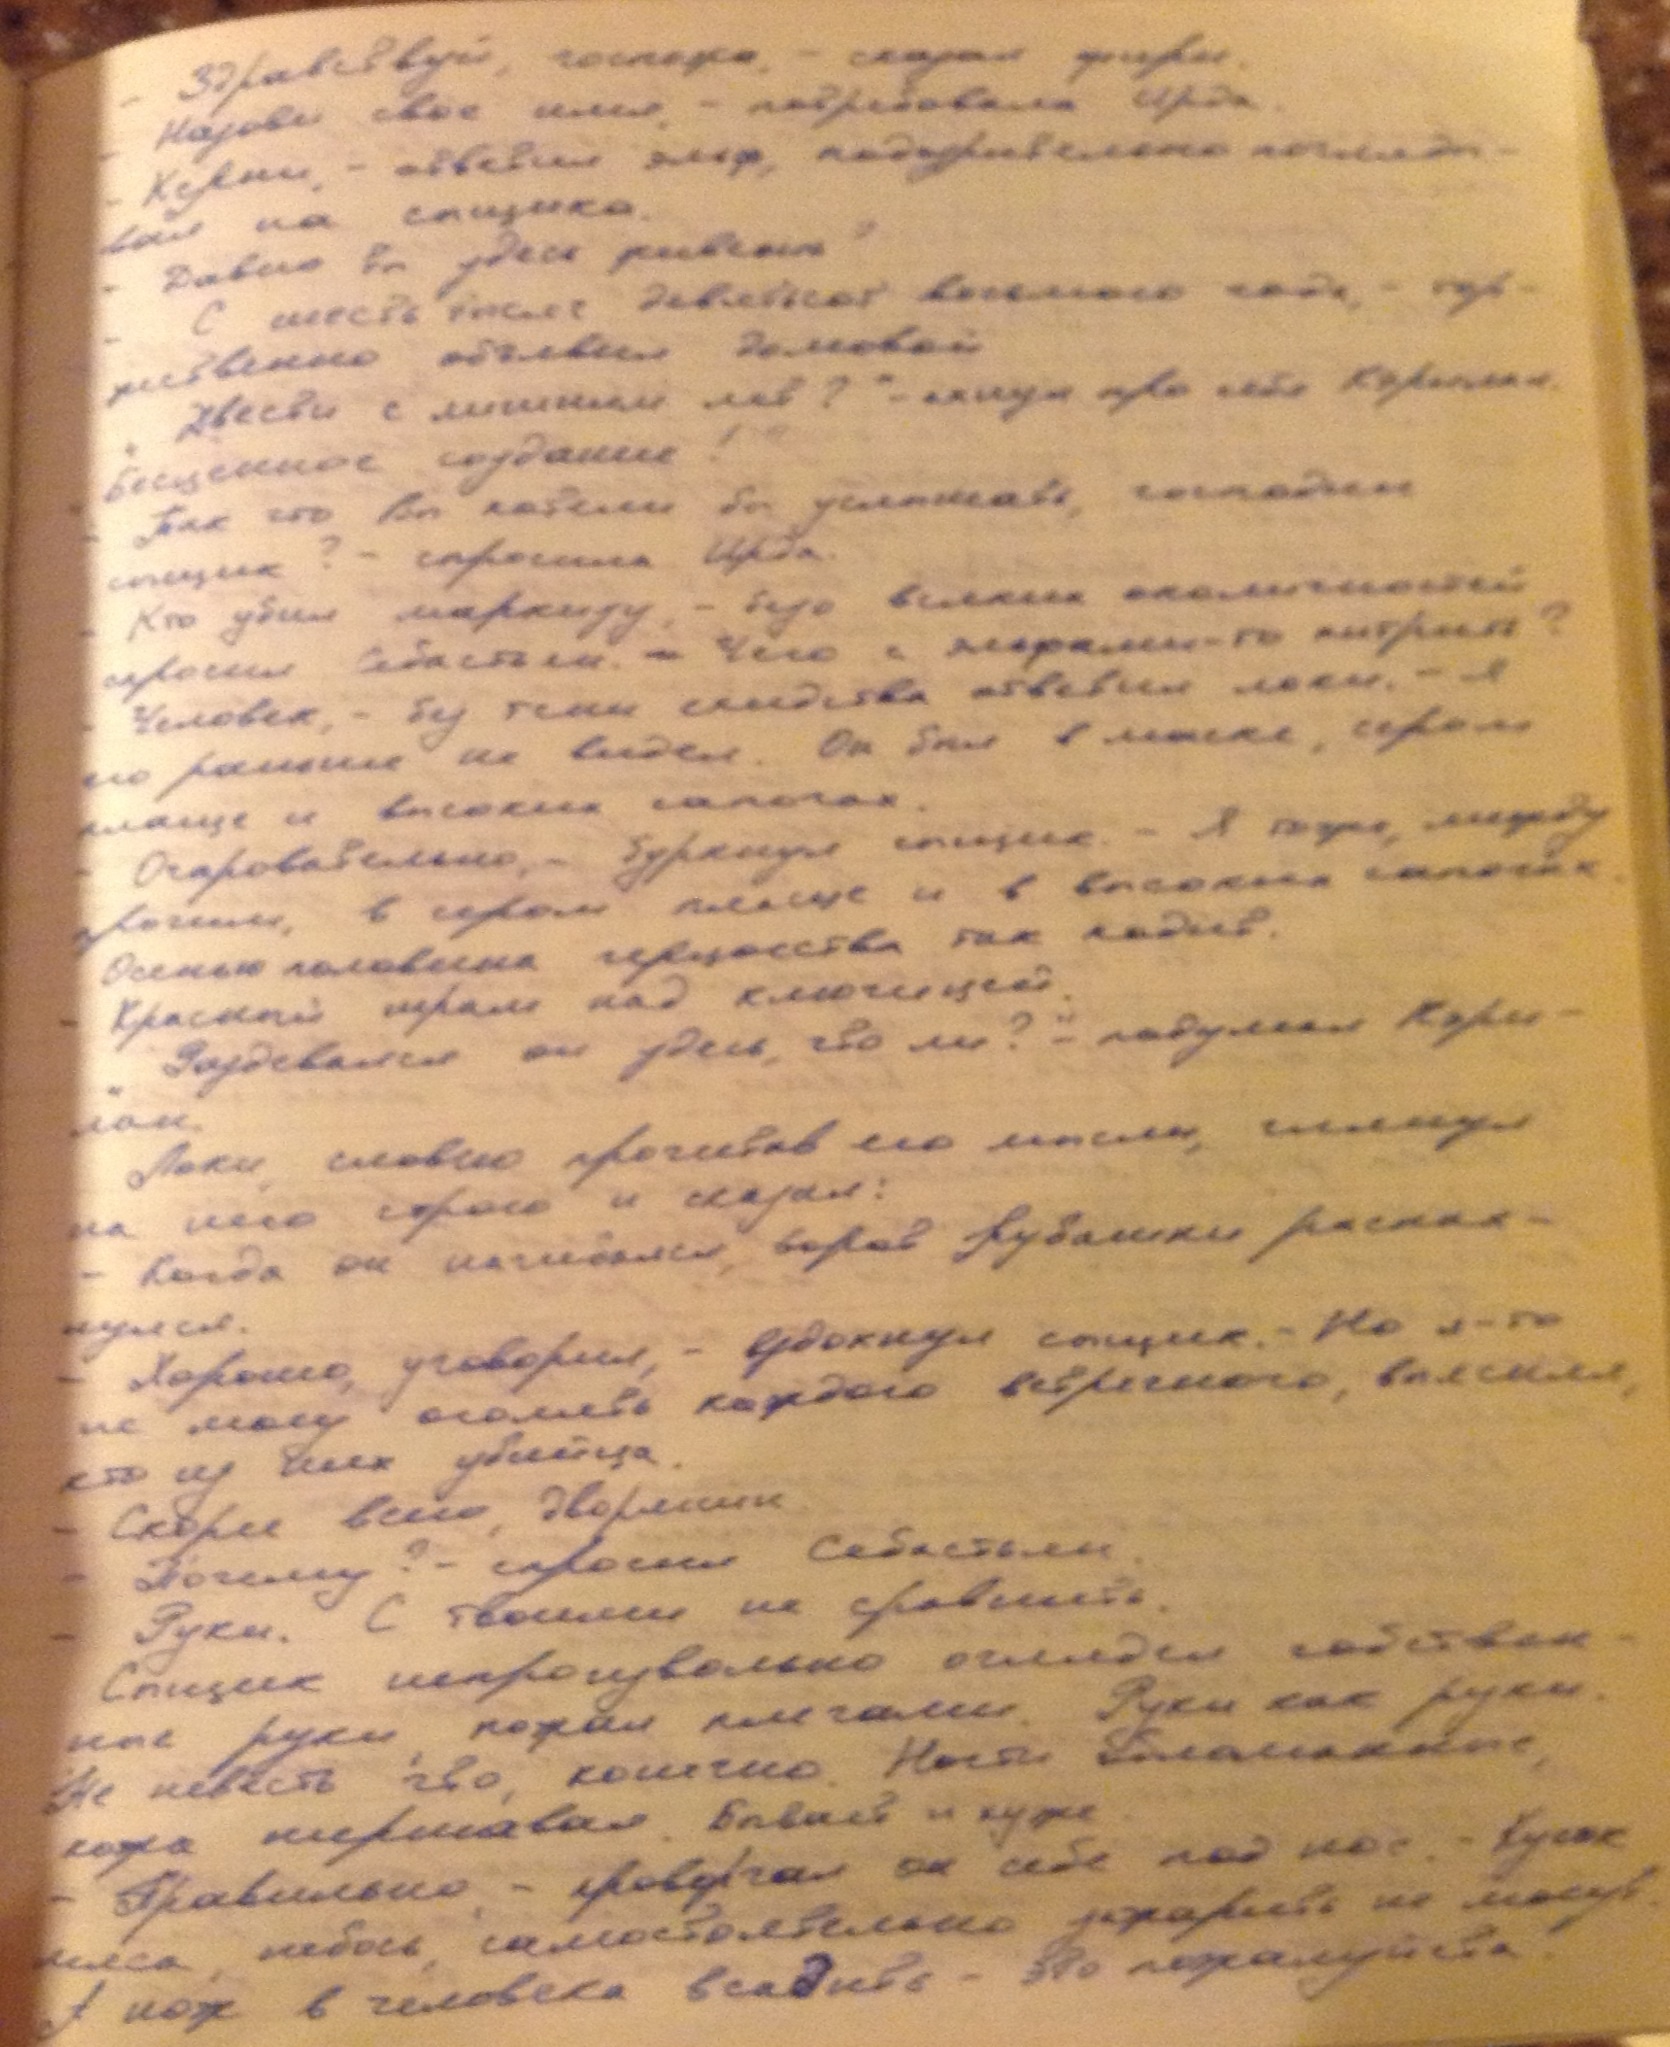 - Здравствуй, госпожа, - сказал
- Назови свое имя, - потребовала Ирда.
- Керни, - ответил эльф, подозрительно погляды-
вая на сыщика.
- Давно ты здесь живешь?
- С шесть тысяч девятьсот восьмого года, - тор-
жественно объявил домовой
" Двести с лишним лет? " - про себя
Бесценное создание!
- Так что Вы хотели бы услышать, господин
сыщик? - спросила Ирда.
- Кто убил маркизу, - безо всяких околичностей
спросил Себастьян. - Чего с эльфами-то хитрить?
- Человек, - без тени ехидства ответил локи. - Я
его раньше не видел. Он был в маске, сером
плаще и высоких сапогах.
- Очаровательно, - буркнул сыщик. - Я тоже, между
прочим, в сером плаще и в высоких сапогах.
Осенью половина герцогства так ходит.
- Красный шрам над ключицей.
" Раздевался он здесь, что ли? " - подумал

Локи, словно прочитав его мысли, глянул
на него строго и сказал:
- Когда он нагибался, ворот рубашки распах-
нулся.
- Хорошо, уговорил, - вздохнул сыщик. - Но я-то
не могу оголять каждого встречного, выясняя,
кто из них убийца.
- Скорее всего, дворянин.
- Почему? - спросил Себастьян.
- Руки. С твоими не сравнить.
Сыщик непроизвольно оглядел собствен-
ные руки, пожал плечами. Руки как руки.
Не невесть что, конечно. Ногти обломанные,
кожа шершавая. Бывает и хуже.
- Правильно, - проворчал он себе под нос. - Кусок
мяса, небось, самостоятельно зажарить не могут.
А нож в человека всадить - это пожалуйста.